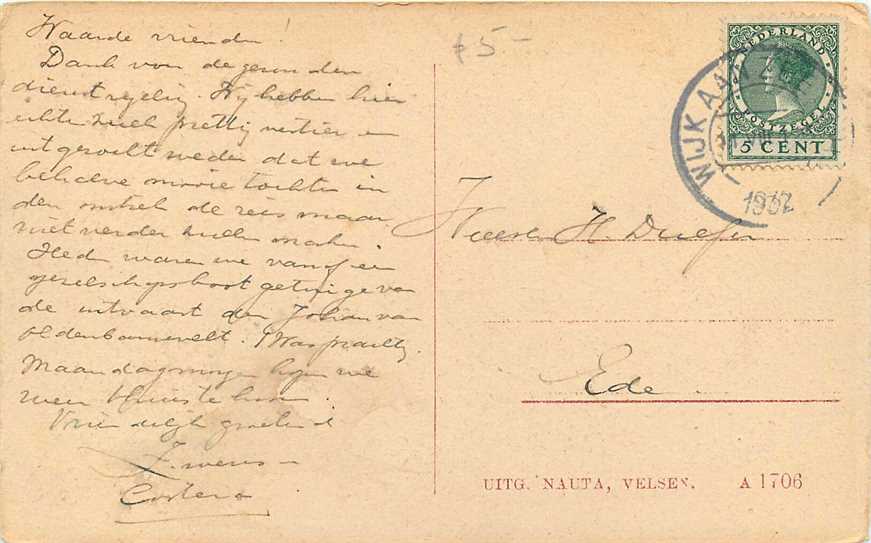 Waarde vrienden!
Dank voor de gezonden
dienstregeling. Wij hebben hier
echter zulk prettig vertier en
uit gevoelt weder dat we
behalve mooie tochten in
den omtrek de reis maar
niet verder zullen maken.
Heden waren we vanaf een
gezelschapsboot getuige van
de uitvaart der Johan van
Oldenbarnevelt. Was prachtig.
Maandagmorgen hopen we
weer thuis te komen.
Vriendelijk groetend
f 5 -
NEDERLAND
POSTZEGEL
5 CENT
WIJK AAN
1932
H
Ede
UITG. NAUTA, VELSEN. A 1706